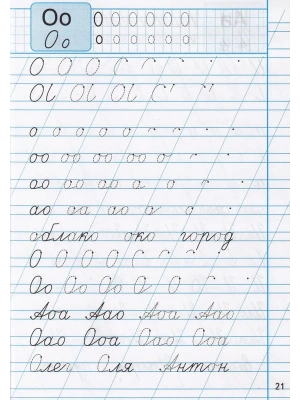 Оо О О О О О О О
Оо о о о о о о о
О О О О
Ol Ol Ol Ol
о о о о о
оо оо оо оо оо о
ао ао ао а о
ао аа ао а о
облако око город
О О О О О
Оо Оо Оо О О
Аоа Аао Аоа Аао
Оао Ооа Оао Ооа
Олег Оля Антон
21